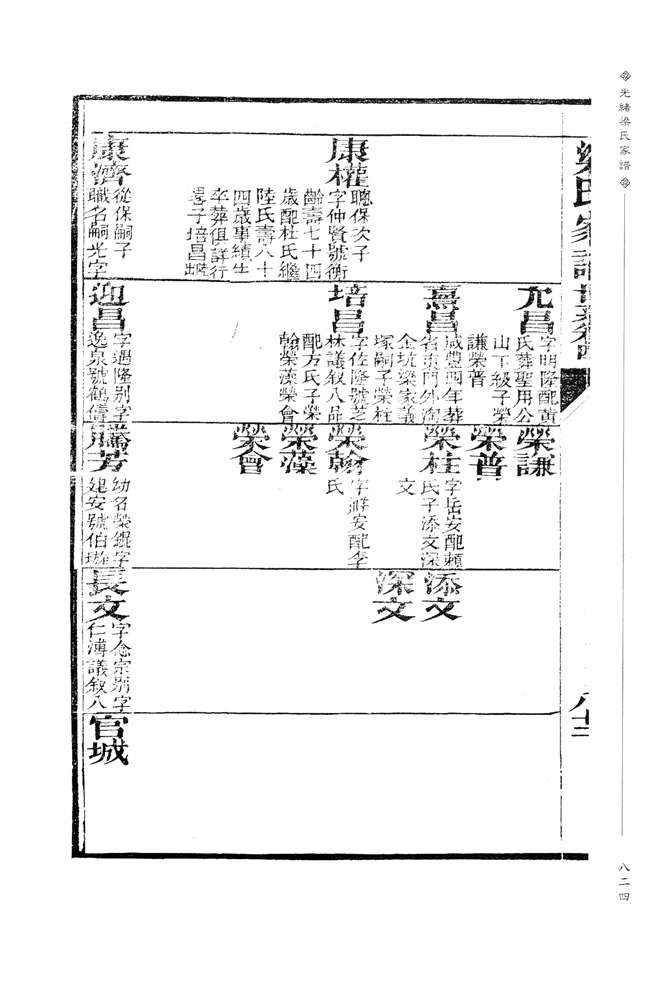 光緒梁氏家譜
八二四
梁氏家譜
八十二
康權
聰保次子
字仲賢號衡
齡壽七十四
歲配杜氏繼
陸氏壽八十
四歲事績生
卒葬俱詳行
子培昌
康濟
從保嗣子
職名嗣光字
允昌
字明隆配黃
氏葬聖用公
山下級子榮
謙榮普
熹昌
咸豐四年葬
省東門外淘
金坑梁家義
塚嗣子榮柱
培昌
字佐隆號芝
林議敘八品
配方氏子榮
翰榮藻榮會
迎昌
字遇隆別字
逸泉號鶴儔
榮謙
榮普
榮柱
字岳安配賴
氏子添文深
文
榮翰
字屏安配李
氏
榮藻
榮會
騰芳
幼名榮錕字
建安號伯璇
添文
深文
長文
字念宗別字
仁溥議敘八
官城